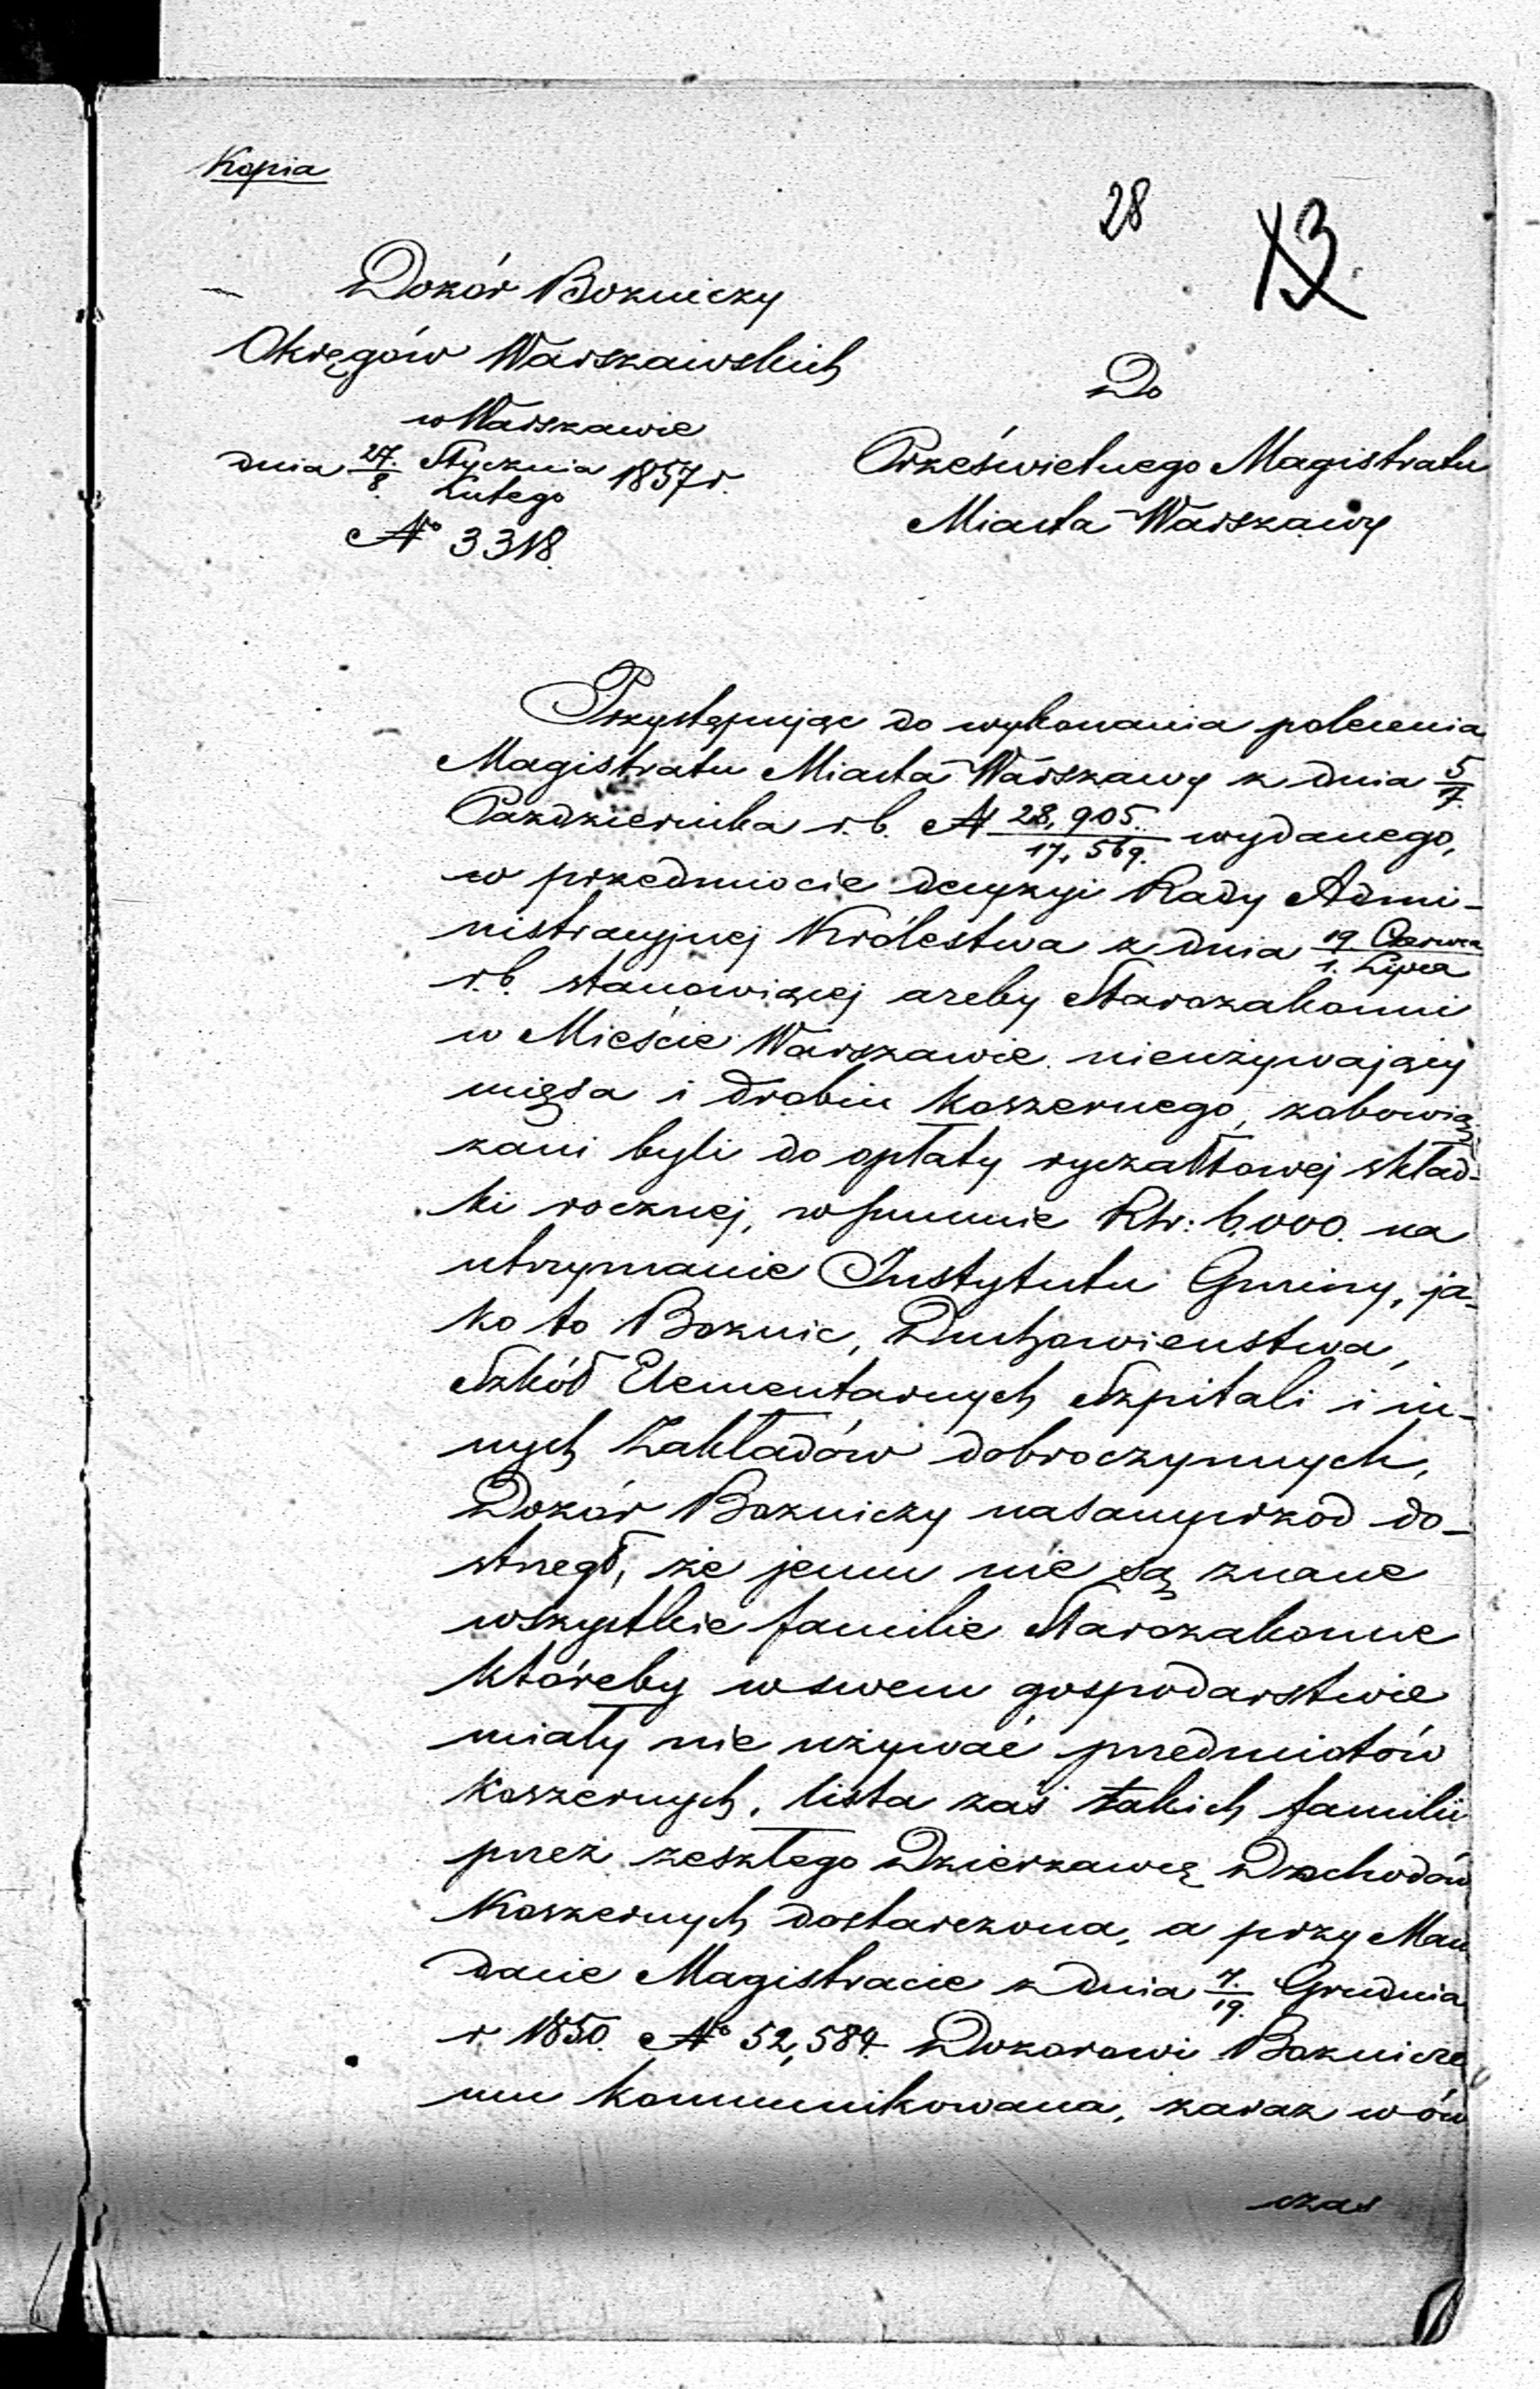 Kopia
28
13.
Dozór Bozniczy
Okręgów Warszawskich
w Warszawie
dnia 27./8. Stycznia/Lutego 1857 r.
No 3318.
Do
Prześwietnego Magistratu
Miasta Warszawy
Przystępując do wykonania polecenia
Magistratu Miasta Warszawy z dnia 5/7.
Października r.b. N 28,905./17,569. wydanego,
w przedmiocie decyzyi Rady Admi-
nistracyjnej Królestwa z dnia 19 Czerwca/1. Lipca
r.b. stanowiącej areby Starozakonni
w Mieście Warszawie nieużywający
mięsa i drobiu koszernego, zobowią
zani byli do opłaty ryczałtowej skład-
ki rocznej, w summie Rbr: 6,000. na
utrzymanie Instytutu Gminy, ja-
ko to Boznic, Duchowieństwa,
Szkół Elementarnych Szpitali i in-
nych Zakładów dobroczynnych,
Dozór Bozniczy nasamprzod do-
strzegł, że jemu nie są znane
wszystkie familie Starozakonne
któreby w swem gospodarstwie
miały nie używać przedmiotów
koszernych, lista zaś takich familii
przez zeszłego Dzierzawcę Dochodów
Koszernych dostarczona, a przy Man
dacie Magistracie z dnia 7./19. Grudnia
r 1850. No 52,584. Dozorowi Boznicze
mu kommunikowana, zaraz wów
czas